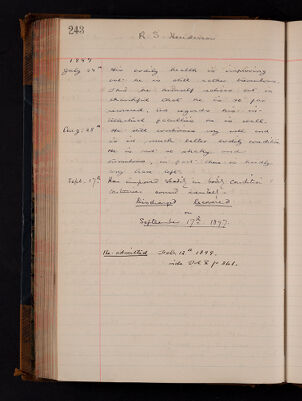 243
R. S. Henderson
1897
July 24th His bodily health is improving
but he is still rather tremulous
and he himself
thankful that he is so far
recovered, as regards his in-
tellectual faculties he is well.
Aug. 28th He still continues very well and
is in much better bodily condition
He is not so shaky and
tremulous, in fact there is hardly
any trace left.
Sept. 17th Has improved steadily in bodily condition &
continues sound mentally.
Discharged Recovered
on
September 17th 1897.
Re-admitted Feb. 13th 1899.
vide Vol 8 p 361.